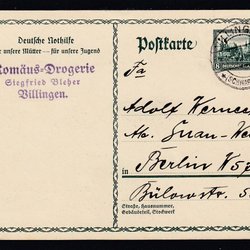 Deutsche Nothilfe
unsere Mütter — für unsere Jugend
Romäus-Drogerie
Siegfried Bleher
Villingen.
Postkarte
Fa
Adolf Werner
Berlin W57
Bülowstr.
Straße, Hausnummer,
Gebäudeteil, Stockwerk